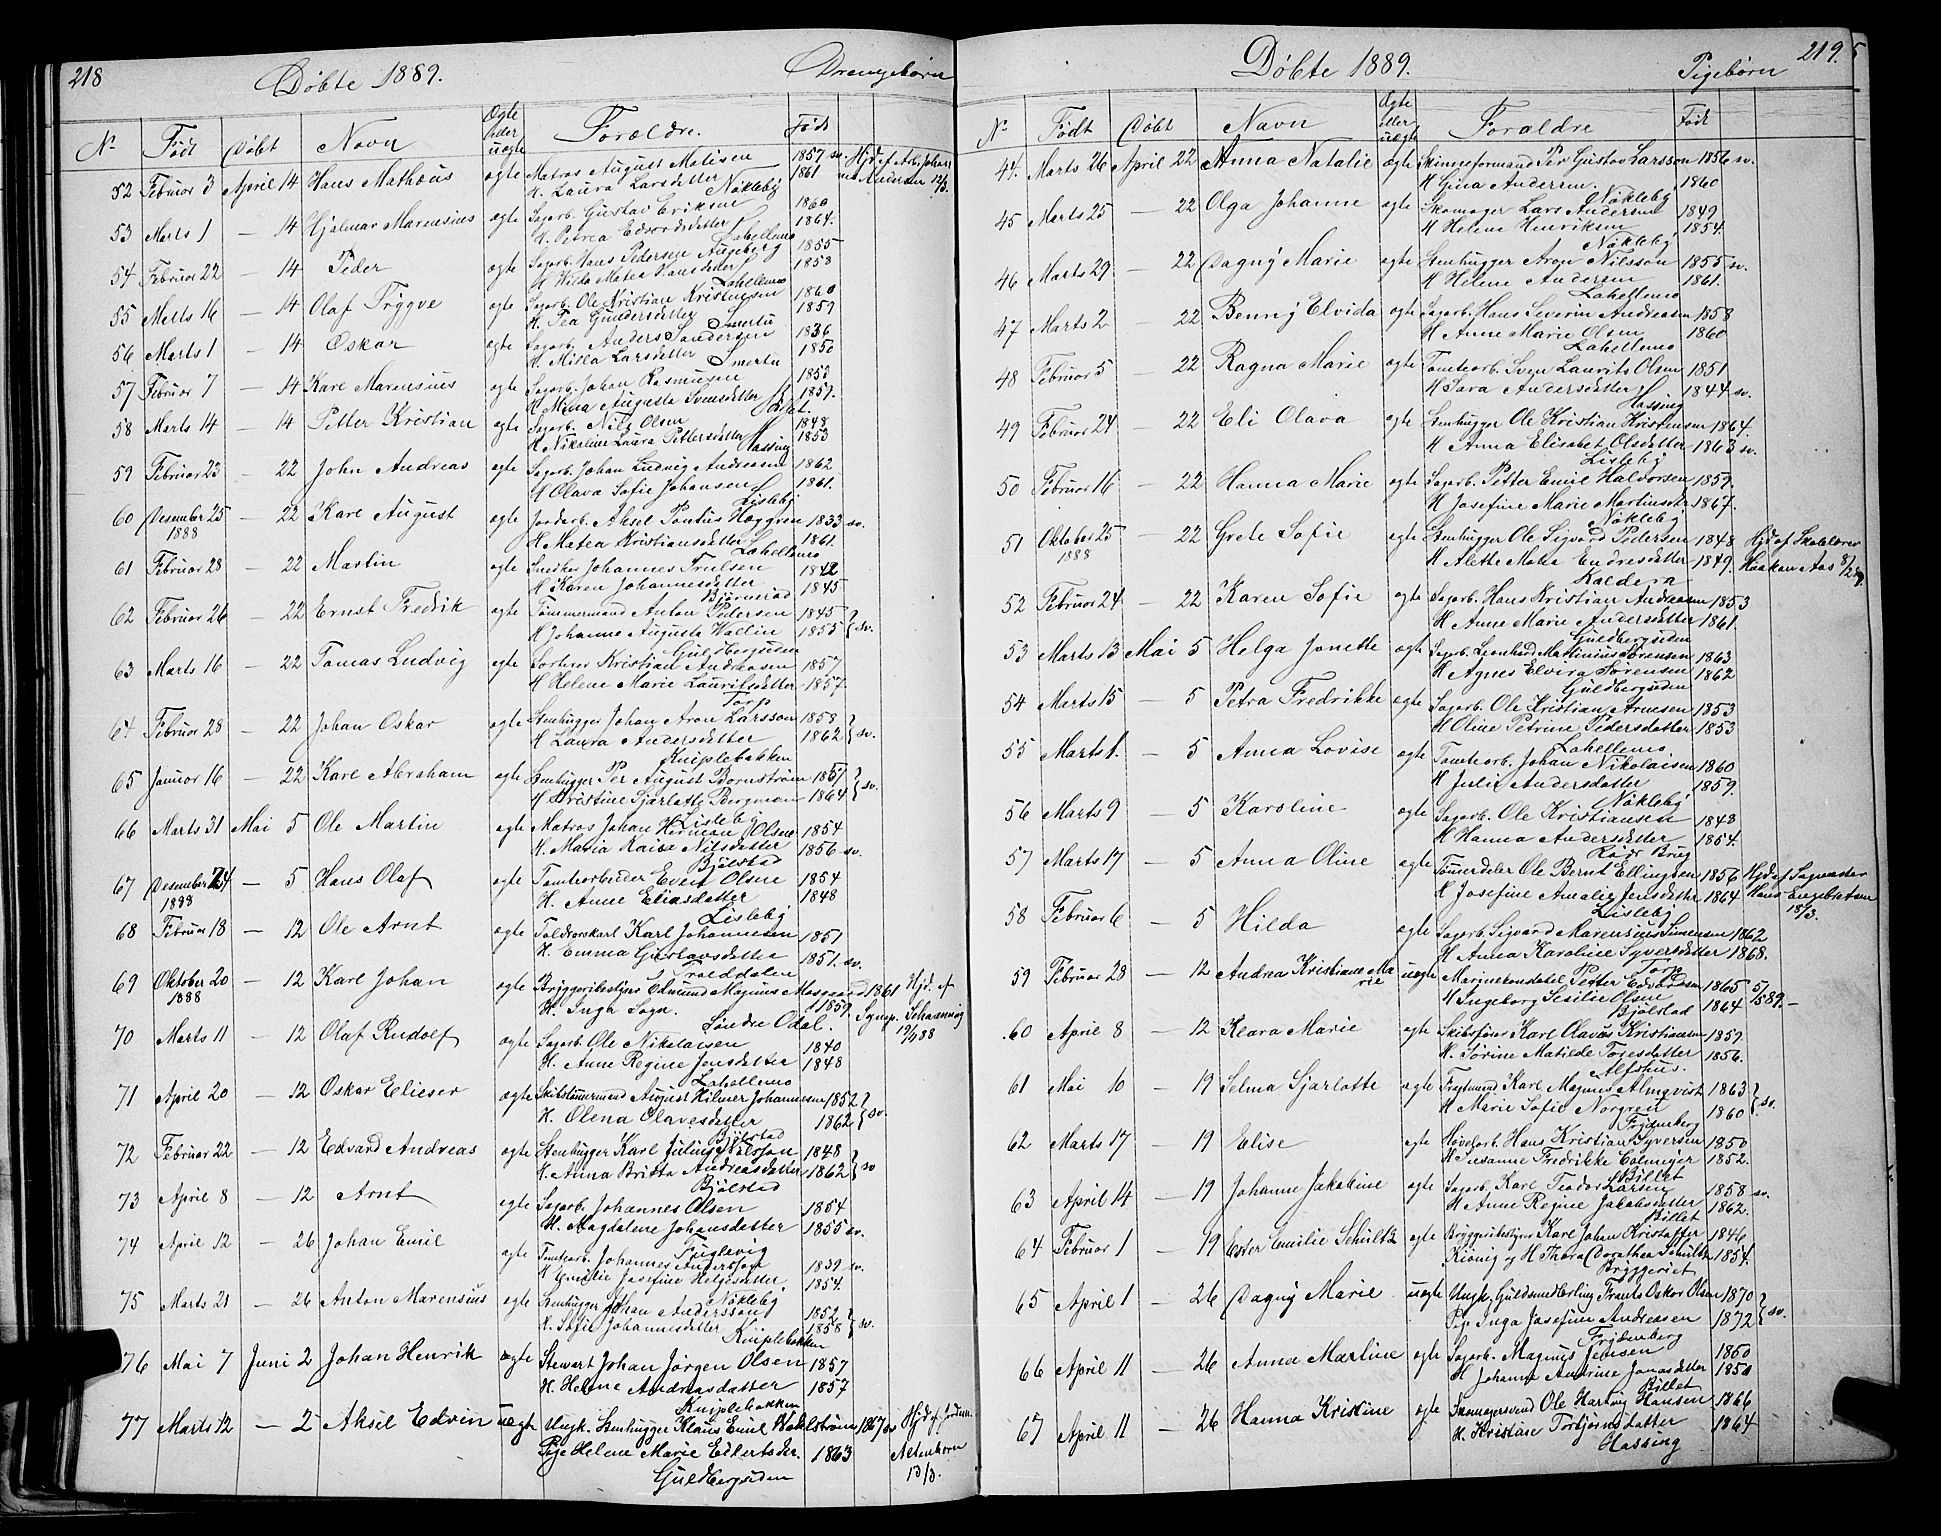 218
Döbte 1889.
Drengebørn
No Født Døbt Navn Ægte eller uægte Forældre. Født
52 Februar 3 April 14 Hans Mathæus ægte Matros August Matisen 1857 sv. Hjd af Arb. Johan
H. Laura Larsdatter 1861 Andersen 12/3.
Nökleby
53 Marts 1 — 14 Hjalmar Marensius ægte Sagarb. Gustav Eriksen 1860
H. Petrea Edvardsdatter 1864.
Lahellemo
54 Februar 22 — 14 Peder ægte Sagarb. Hans Pedersen Augeberg 1855
H. Hilda Matea Hansdatter 1858
Lahellemo
55 Marts 16 — 14 Olaf Trygve ægte Sagarb. Ole Kristian Kristensen 1860
H. Tea Gundersdatter 1859
Smertu
56 Marts 1 — 14 Oskar ægte Sagarb. Anders Sandersen 1836
H. Milla Larsdatter 1850
Smertu
57 Februar 7 — 14 Karl Marensius ægte Sagarb. Johan Rasmusen 1853
H. Mina Augusta Svensdatter 1857.
58 Marts 14 — 14 Petter Kristian ægte Sagarb. Nils Olsen 1848
H. Nikoline Laura Pettersdatter 1853
Hassing
59 Februar 23 — 22 John Andreas ægte Sagarb. Johan Ludvig Andreasen 1862
H Olava Sofie Johansen 1861.
Lisleby
60 Desember 25 — 22 Karl August ægte Jordarb. Aksel Pontus Hæggren 1833 sv.
1888 H. Matea Kristiansdatter 1861.
Lahellemo
61 Februar 28 — 22 Martin ægte Snedker Johannes Trulsen 1842
H. Karen Johannesdatter 1845
Bjørnstad
62 Februar 26 — 22 Ernst Fredrik ægte Timmermand Anton Pedersen 1845
H Johanne Augusta Wallin 1855 } sv.
Guldbergsiden
63 Marts 16 — 22 Tomas Ludvig ægte Sorterer Kristian Andreasen 1857
H Helene Marie Lauritsdatter 1857.
Torp
64 Februar 28 — 22 Johan Oskar ægte Stenhugger Johan Aron Larsson 1858
H Laura Andersdatter 1862 } sv.
Kniplebakken
65 Januar 16 — 22 Karl Abraham ægte Stenhugger Per August Bornström 1857
H Kristine Sjarlotte Bergman 1864 } sv.
Lisleby
66 Marts 31 Mai 5 Ole Martin ægte Matros Johan Herman Olsen 1854
H. Maria Kaisa Nilsdatter 1856 sv.
Bjölstad
67 Desember 24 — 5 Hans Olaf ægte Tomtearbeider Evert Olsen 1854
1888 H. Anne Eliasdatter 1848
Lisleby
68 Februar 18 — 12 Ole Arnt ægte Toldrorskarl Karl Johannesen 1851
H. Emma Gustavsdatter 1851. sv.
Traddalen
69 Oktober 20 — 12 Karl Johan ægte Bryggeribestyrer Edmund Magnus Mosgaard 1861 Hjd. af
1888 H. Inga Sogn. 1859. Sognep. Schanning
Söndre Odal. 19/11 88
70 Marts 11 — 12 Olaf Rudolf ægte Sagarb. Ole Nikolaisen 1840
H. Anne Regine Jensdatter 1848
Lahellemo
71 April 20 — 12 Oskar Elieser ægte Skibstømmermand August Hilmer Johannesen 1852
H. Olena Olavesdatter 1862 } sv.
Bjölstad
72 Februar 22 — 12 Edvard Andreas ægte Stenhugger Karl Julius Nilsson 1848
H. Anna Britta Andreasdatter 1862 } sv
Bjölstad
73 April 8 — 12 Arnt ægte Sagarb. Johannes Olsen 1854
H. Magdalene Johansdatter 1855 sv.
Fuglevig
74 April 12 — 26 Johan Emil ægte Tomtearb. Johannes Andersson 1839 sv.
H Emilie Josefine Helgesdatter 1854.
Nökleby
75 Marts 21 — 26 Anton Marensius ægte Stenhugger Johan Anderssen 1852
H. Sofie Johannesdatter 1858 } sv.
Kniplebakken
76 Mai 7 Juni 2 Johan Henrik ægte Stewart Johan Jörgen Olsen 1857
H. Helene Andreasdatter 1857
Kniplebakken
77 Marts 12 — 2 Aksel Edvin uægte Ungk. Stenhugger Klaus Emil Wahlström 1867 sv Hjd af Jordm.
Pige Helene Marie Eilertsdr. 1863 Altenborn
Guldbergsiden 13/3.
219.
Döbte 1889.
Pigebørn
No Født Døbt Navn Ægte eller uægte Forældre Født
44. Marts 26 April 22 Anna Natalie ægte Skinneformand Per Gustav Larsson 1856 sv.
H Gina Andersen. 1860
Nökleby
45 Marts 25 — 22 Olga Johanne ægte Skomager Lars Andersen 1849
H Helene Henriksen 1854.
Nökleby
46 Marts 29 — 22 Dagny Marie ægte Stenhugger Aron Nilsson 1855 sv.
H Helene Andersen 1861.
Lahellemo
47 Marts 2 — 22 Benny Elvida ægte Sagarb. Hans Severin Andreasen 1858
H Anne Marie Olsen 1860
Lahellemo
48 Februar 5 — 22 Ragna Marie ægte Tomtearb. Sven Laurits Olsen 1851
H Sara Andersdatter 1844 sv.
Hassing
49 Februar 24 — 22 Eli Olava ægte Stenhugger Ole Kristian Kristensen 1864.
H Anna Elisabet Olsdatter 1863 sv.
Lisleby
50 Februar 16 — 22 Hanna Marie ægte Sagarb. Petter Emil Halvorsen 1859.
H Josefine Marie Martinsdr. 1867.
Nökleby
51 Oktober 25 — 22 Grete Sofie ægte Stenhugger Ole Sigvard Pedersen 1848 Hjd af Skolelærer
1888 H Alette Matea Endresdatter 1849. Haakon Aas 8/2 89.
Kaldera
52 Februar 24 — 22 Karen Sofie ægte Sagarb. Hans Kristian Andreasen 1853
H Anne Marie Andersdatter 1861.
Guldbergsiden
53 Marts 13 Mai 5 Helga Jonette ægte Sagarb. Leonhard Mathinius Sörensen 1863
H Agnes Elvira Sörensen 1862
Guldbergsiden
54 Marts 15 — 5 Petra Fredrikke ægte Sagarb. Ole Kristian Arnesen 1853
H Oline Petrine Pedersdatter 1853
Lahellemo
55 Marts 1. — 5 Anna Lovise ægte Tomtearb. Johan Nikolaisen 1860
H Julie Andersdatter 1859.
Nökleby
56 Marts 9 — 5 Karoline ægte Sagarb. Ole Kristiansen 1848
H Hanna Andersdatter 1854.
Roös Brug
57 Marts 17 — 5 Anna Oline ægte Tömmerdeler Ole Bernt Ellingsen 1856 Hjd af Sagmester
H Josefine Amalie Jensdatter 1864 Hans Engebretsen
Lisleby 18/3.
58 Februar 6 — 5 Hilda ægte Sagarb. Sigvard Marensius Simensen 1862
H Anna Karoline Syversdatter 1868.
Torp
59 Februar 28 — 12 Andrea Kristiane Marie uægte Marineremdatel Petter Edvardsen 1865 5/5 89. —
H Ingeborg Sesilie Olsen 1864
Bjölstad
60 April 8 — 12 Klara Marie ægte Skibsförer Karl Olavus Kristiansen 1859.
H. Sörine Matilde Togesdatter 1856.
Alfshus.
61 Mai 10 — 19 Selma Sjarlotte ægte Fragtmand Karl Magnus Almqvist 1863
H Marie Sofie Norgren 1860 } sv.
Frydenberg
62 Marts 17 — 19 Elise ægte Høvelarb. Hans Kristian Syversen 1850
H Susanne Fredrikke Colmeyer 1852.
Billet
63 April 14 — 19 Johanne Jakobine ægte Sagarb. Karl Teodor Larsen 1858 sv.
H Anne Regine Jakobsdatter 1862.
Billet
64 Februar 1 — 19 Ester Emilie Schultz ægte Bryggeribestyrer Karl Johan Kristoffer 1846
Kiönig og H Thora Dorothea Schultz 1854.
Bryggeriet
65 April 1 — 26 Dagny Marie uægte Ungk. Guldsmedlærling Frants Oskar Olsen 1870
Pige Inga Josefine Andreasen 1872 } sv.
Frydenberg
66 April 11 — 26 Anna Martine ægte Sagarb. Magnus Jensen 1850
H Johanne Andrine Jonasdatter 1850
Billet
67 April 11 — 26 Hanna Kristine ægte Skomagersvend Ole Hartvig Hansen 1866
H. Kristine Torbjörnsdatter 1864
Hassing